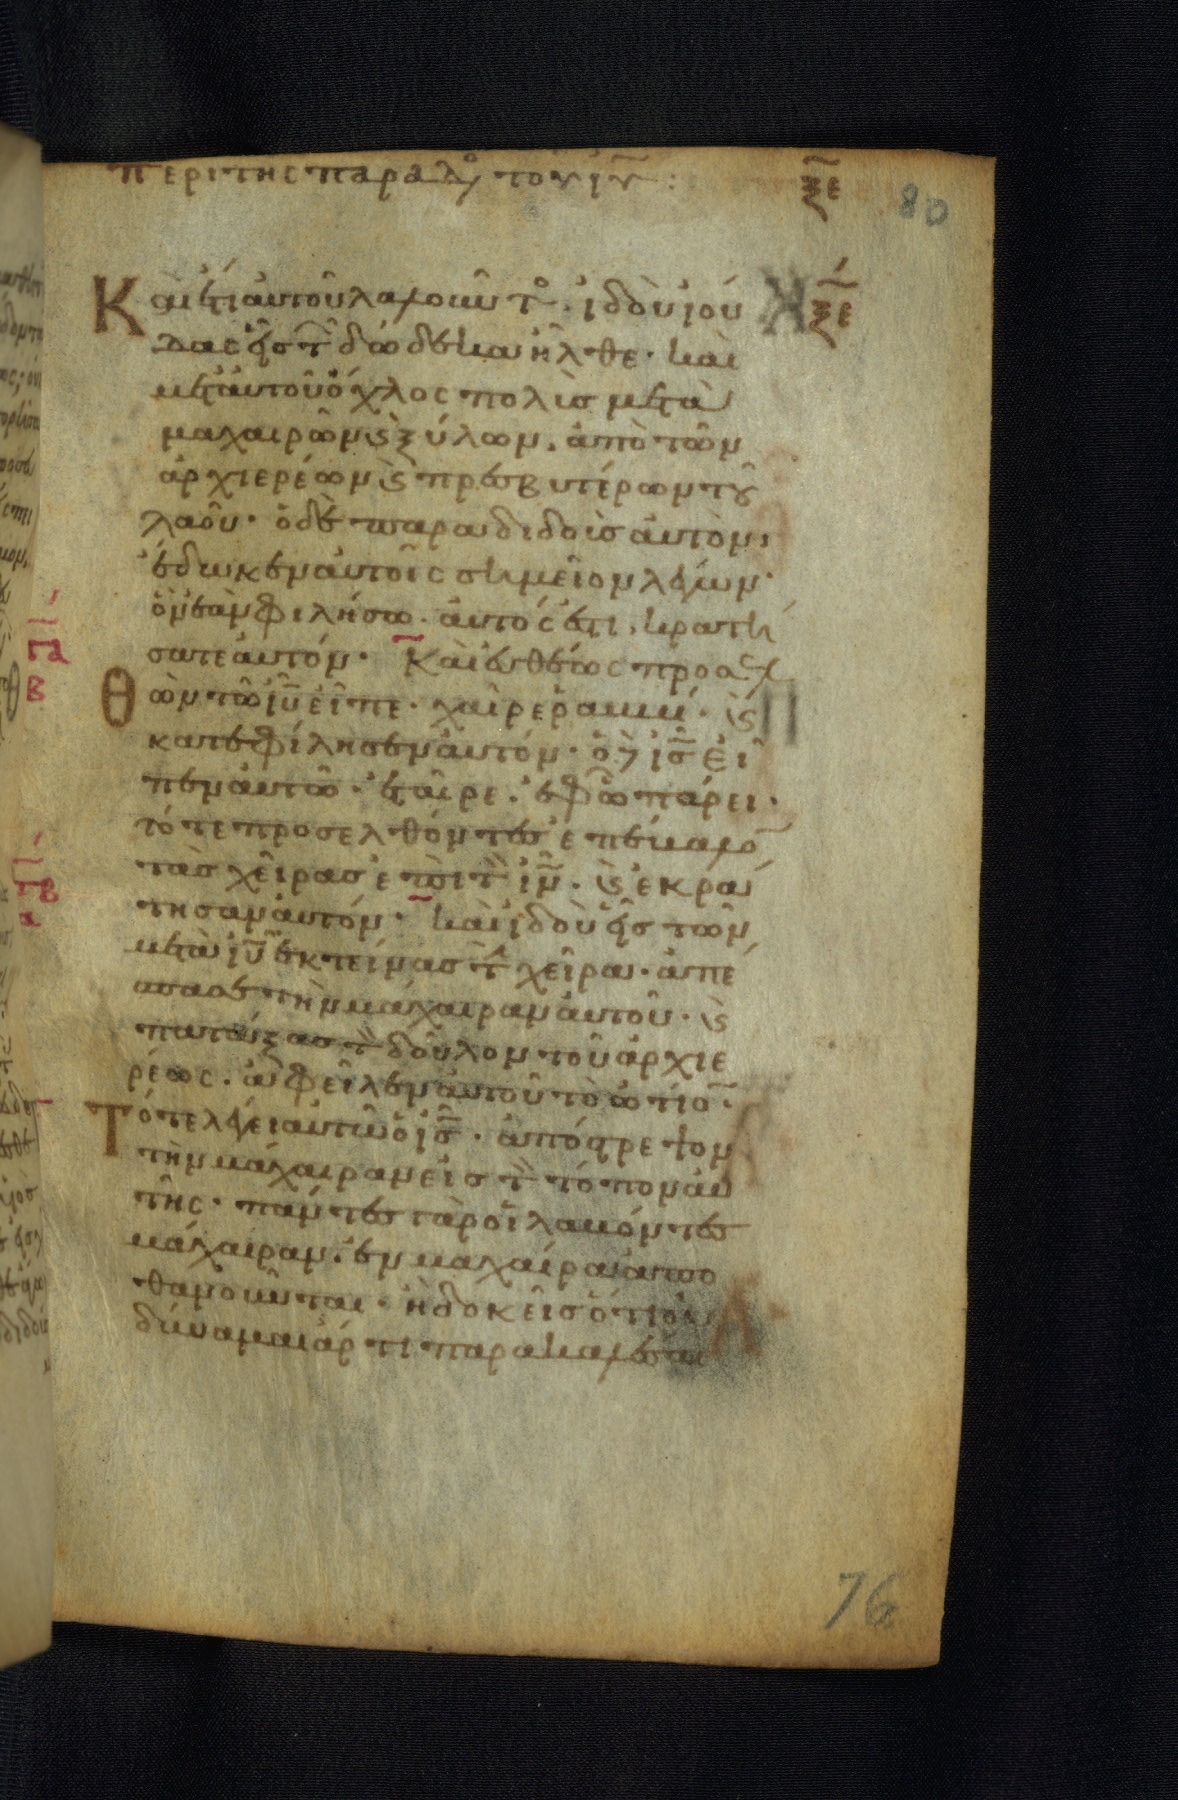 περὶ τῆς παραλ/ο τοῦ ἰῦ : ξε
80
Καὶ ἔτι αὐτοῦ λαλοῦντο. ἰδοὺ ἰού ξε
δας εἷς τ δώδεκα ἦλθε· καὶ
μετ αὐτοῦ ὄχλος πολὺς μετὰ
μαχαιρῶν ϛ ξύλων. ἀπὸ τῶν
ἀρχιερέων ϛ πρεσβυτέρων τοῦ
λαοῦ· ὁ δὲ παραδιδοὶς αὐτὸν,
ἔδωκεν αὐτοῖς σημεῖον λέγων·
ὃν ἐὰν φιλήσω. αὐτός ἐστι, κρατή
σατε αὐτόν· Καὶ εὐθέως προσελ
γα
β
θὼν τῶ ἰῦ εἶπε· χαῖρε ῥαββί· ϛ
κατεφίλησεν αὐτόν· ὁ δὲ ἰς εἶ
πεν αὐτῶ· ἑταῖρε. ἐφ ὧ πάρει·
τότε προσελθόντες ἐπέβαλο
τὰς χεῖρας ἐπὶ τ ἰν. ϛ ἐκρά
γβ
α
τησαν αὐτόν· καὶ ἰδοὺ εἷς τῶν
μετὰ ἰῦ ἐκτείνας τ χεῖρα. ἀπέ
σπασε τὴν μάχαιραν αὐτοῦ. ϛ
πατάξας τ δοῦλον τοῦ ἀρχιε
ρέως. ἀφεῖλεν αὐτοῦ τὸ ὠτίο.
Τότε λέγει αὐτῶ ὁ ἰς. ἀπόστρεψον
τὴν μάχαιραν εἰς τ τόπον αὐ
τῆς. πάντες γὰρ οἱ λαβόντες
μάχαιραν. ἐν μαχαίρα ἀπο
θανοῦνται. ἢ δοκεῖς ὅτι οὐ
δύναμαι ἄρτι παρακαλέσαι
76